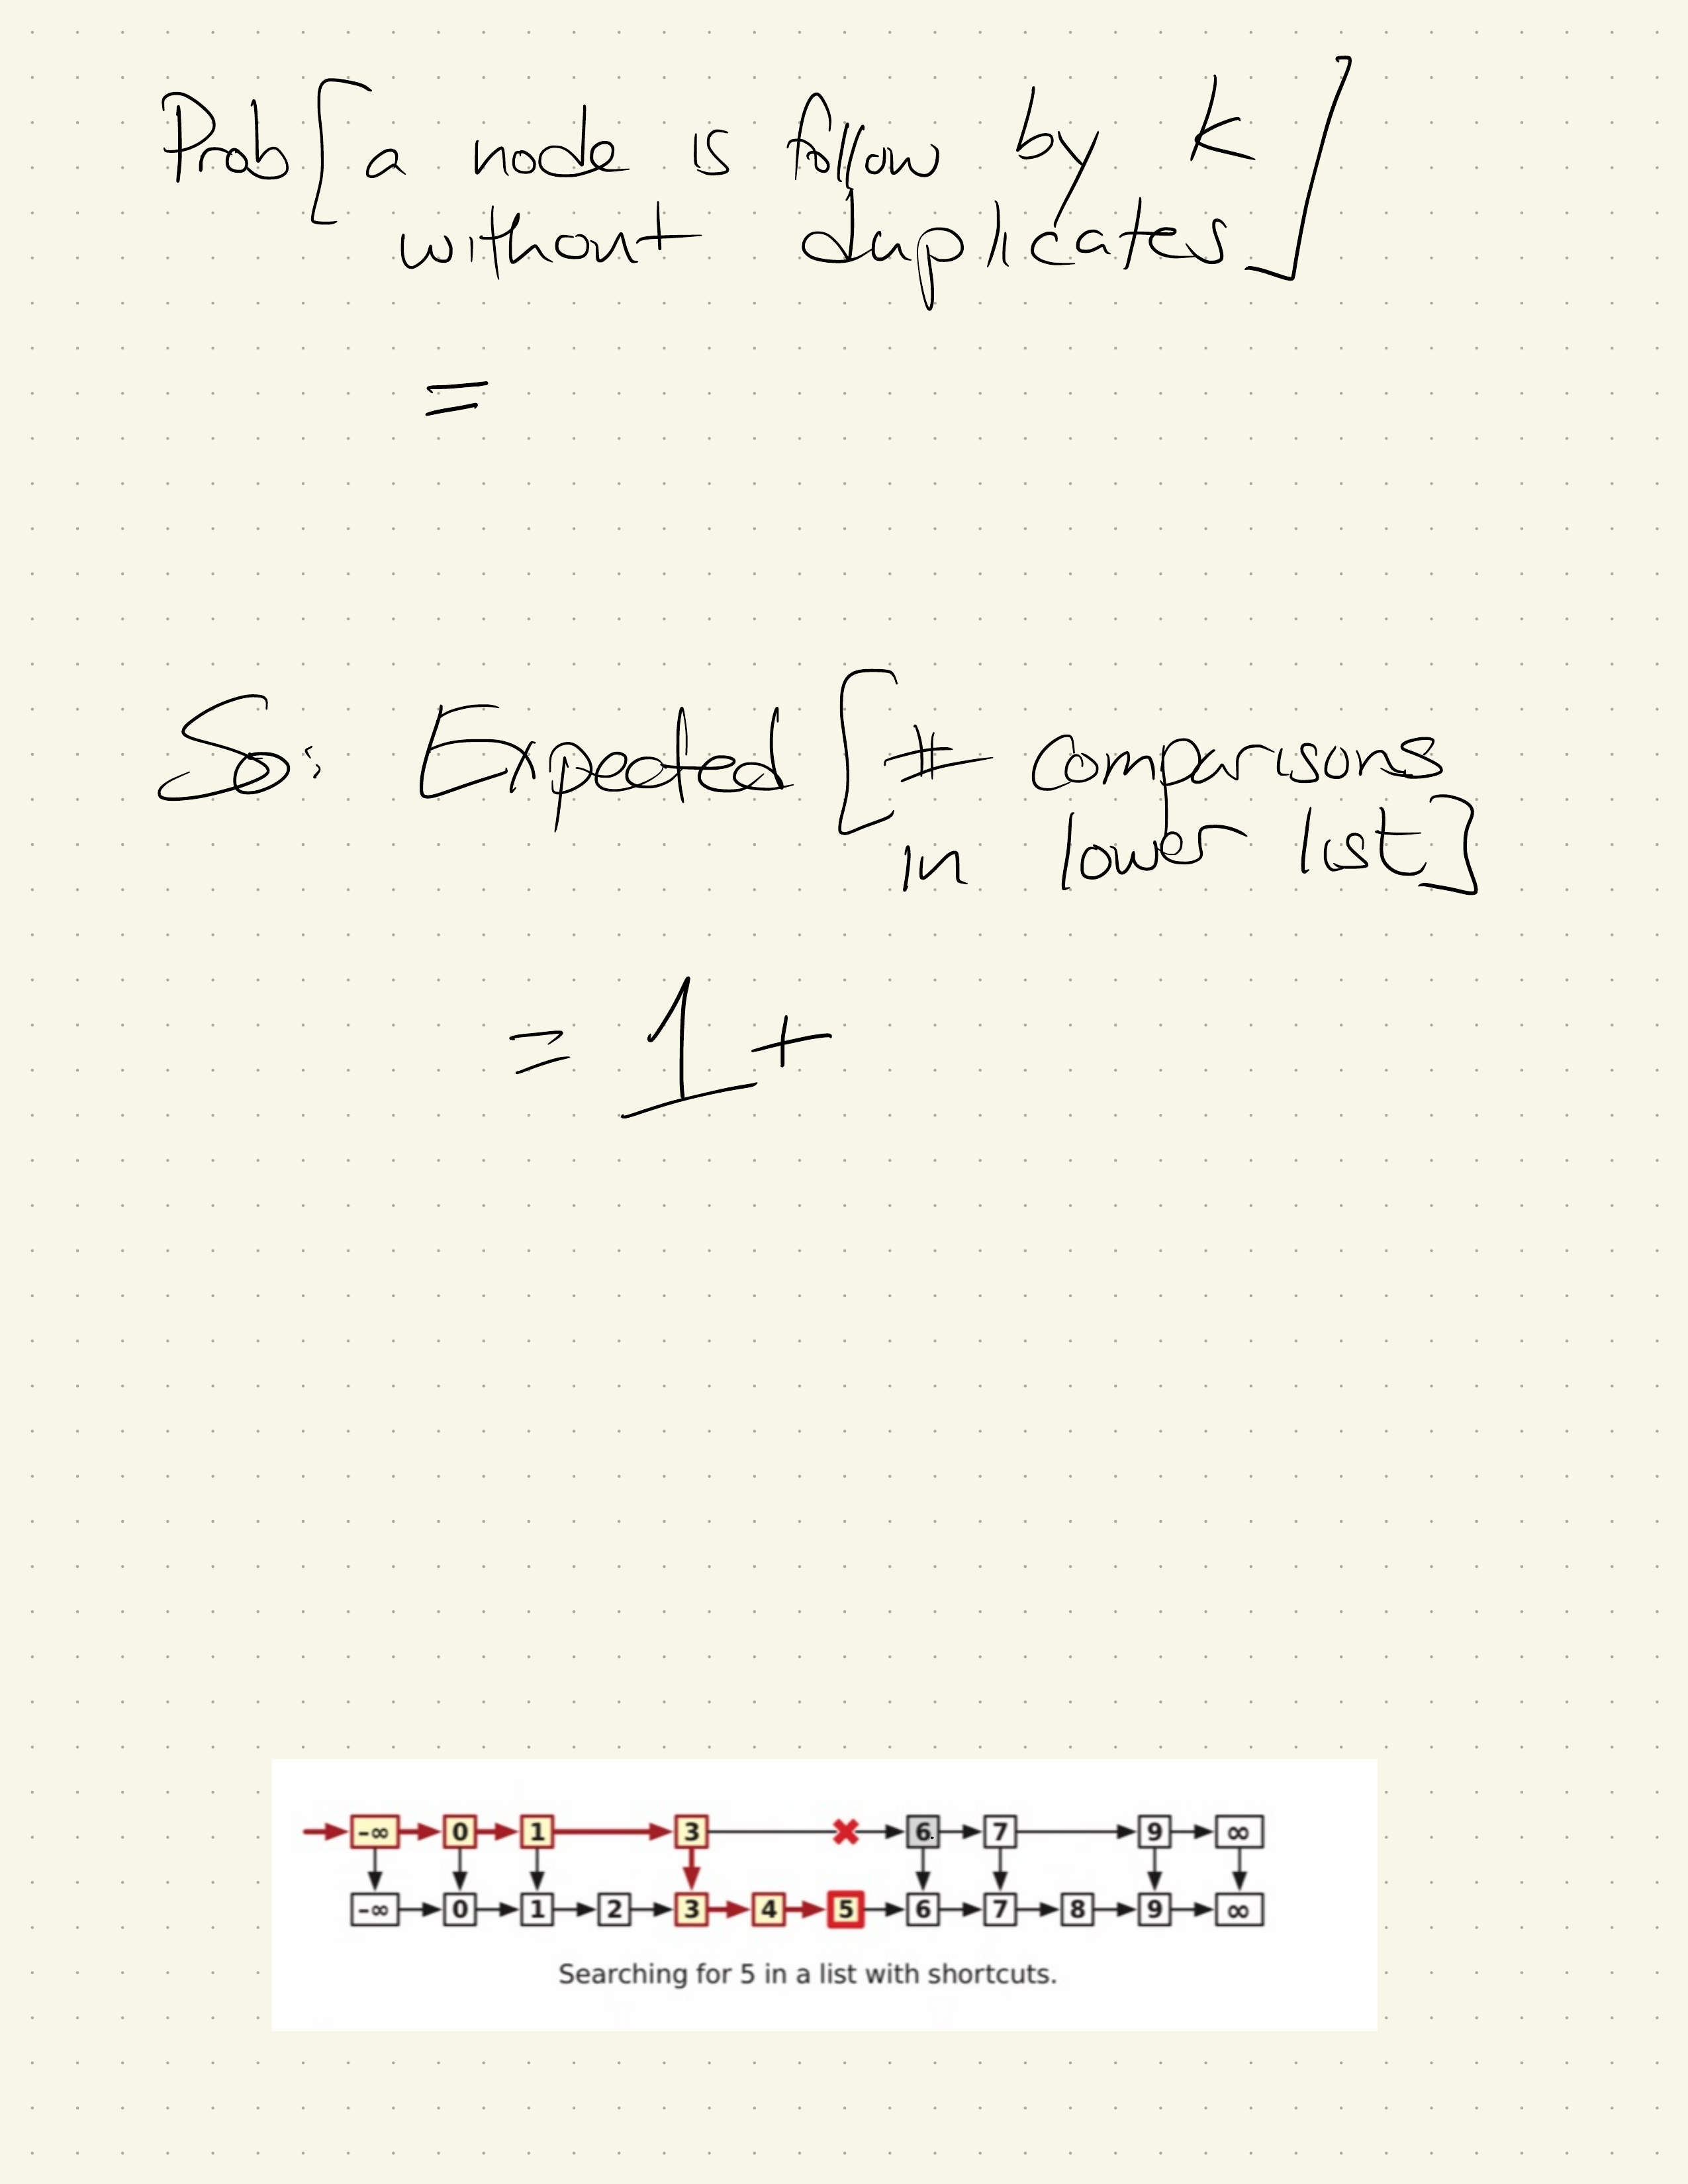 Prob[a node is follow by k
without duplicates]
=
So: Expected [# comparisons
in lower list]
= 1 +
-∞ 0 1 3 6 7 9 ∞
-∞ 0 1 2 3 4 5 6 7 8 9 ∞
Searching for 5 in a list with shortcuts.